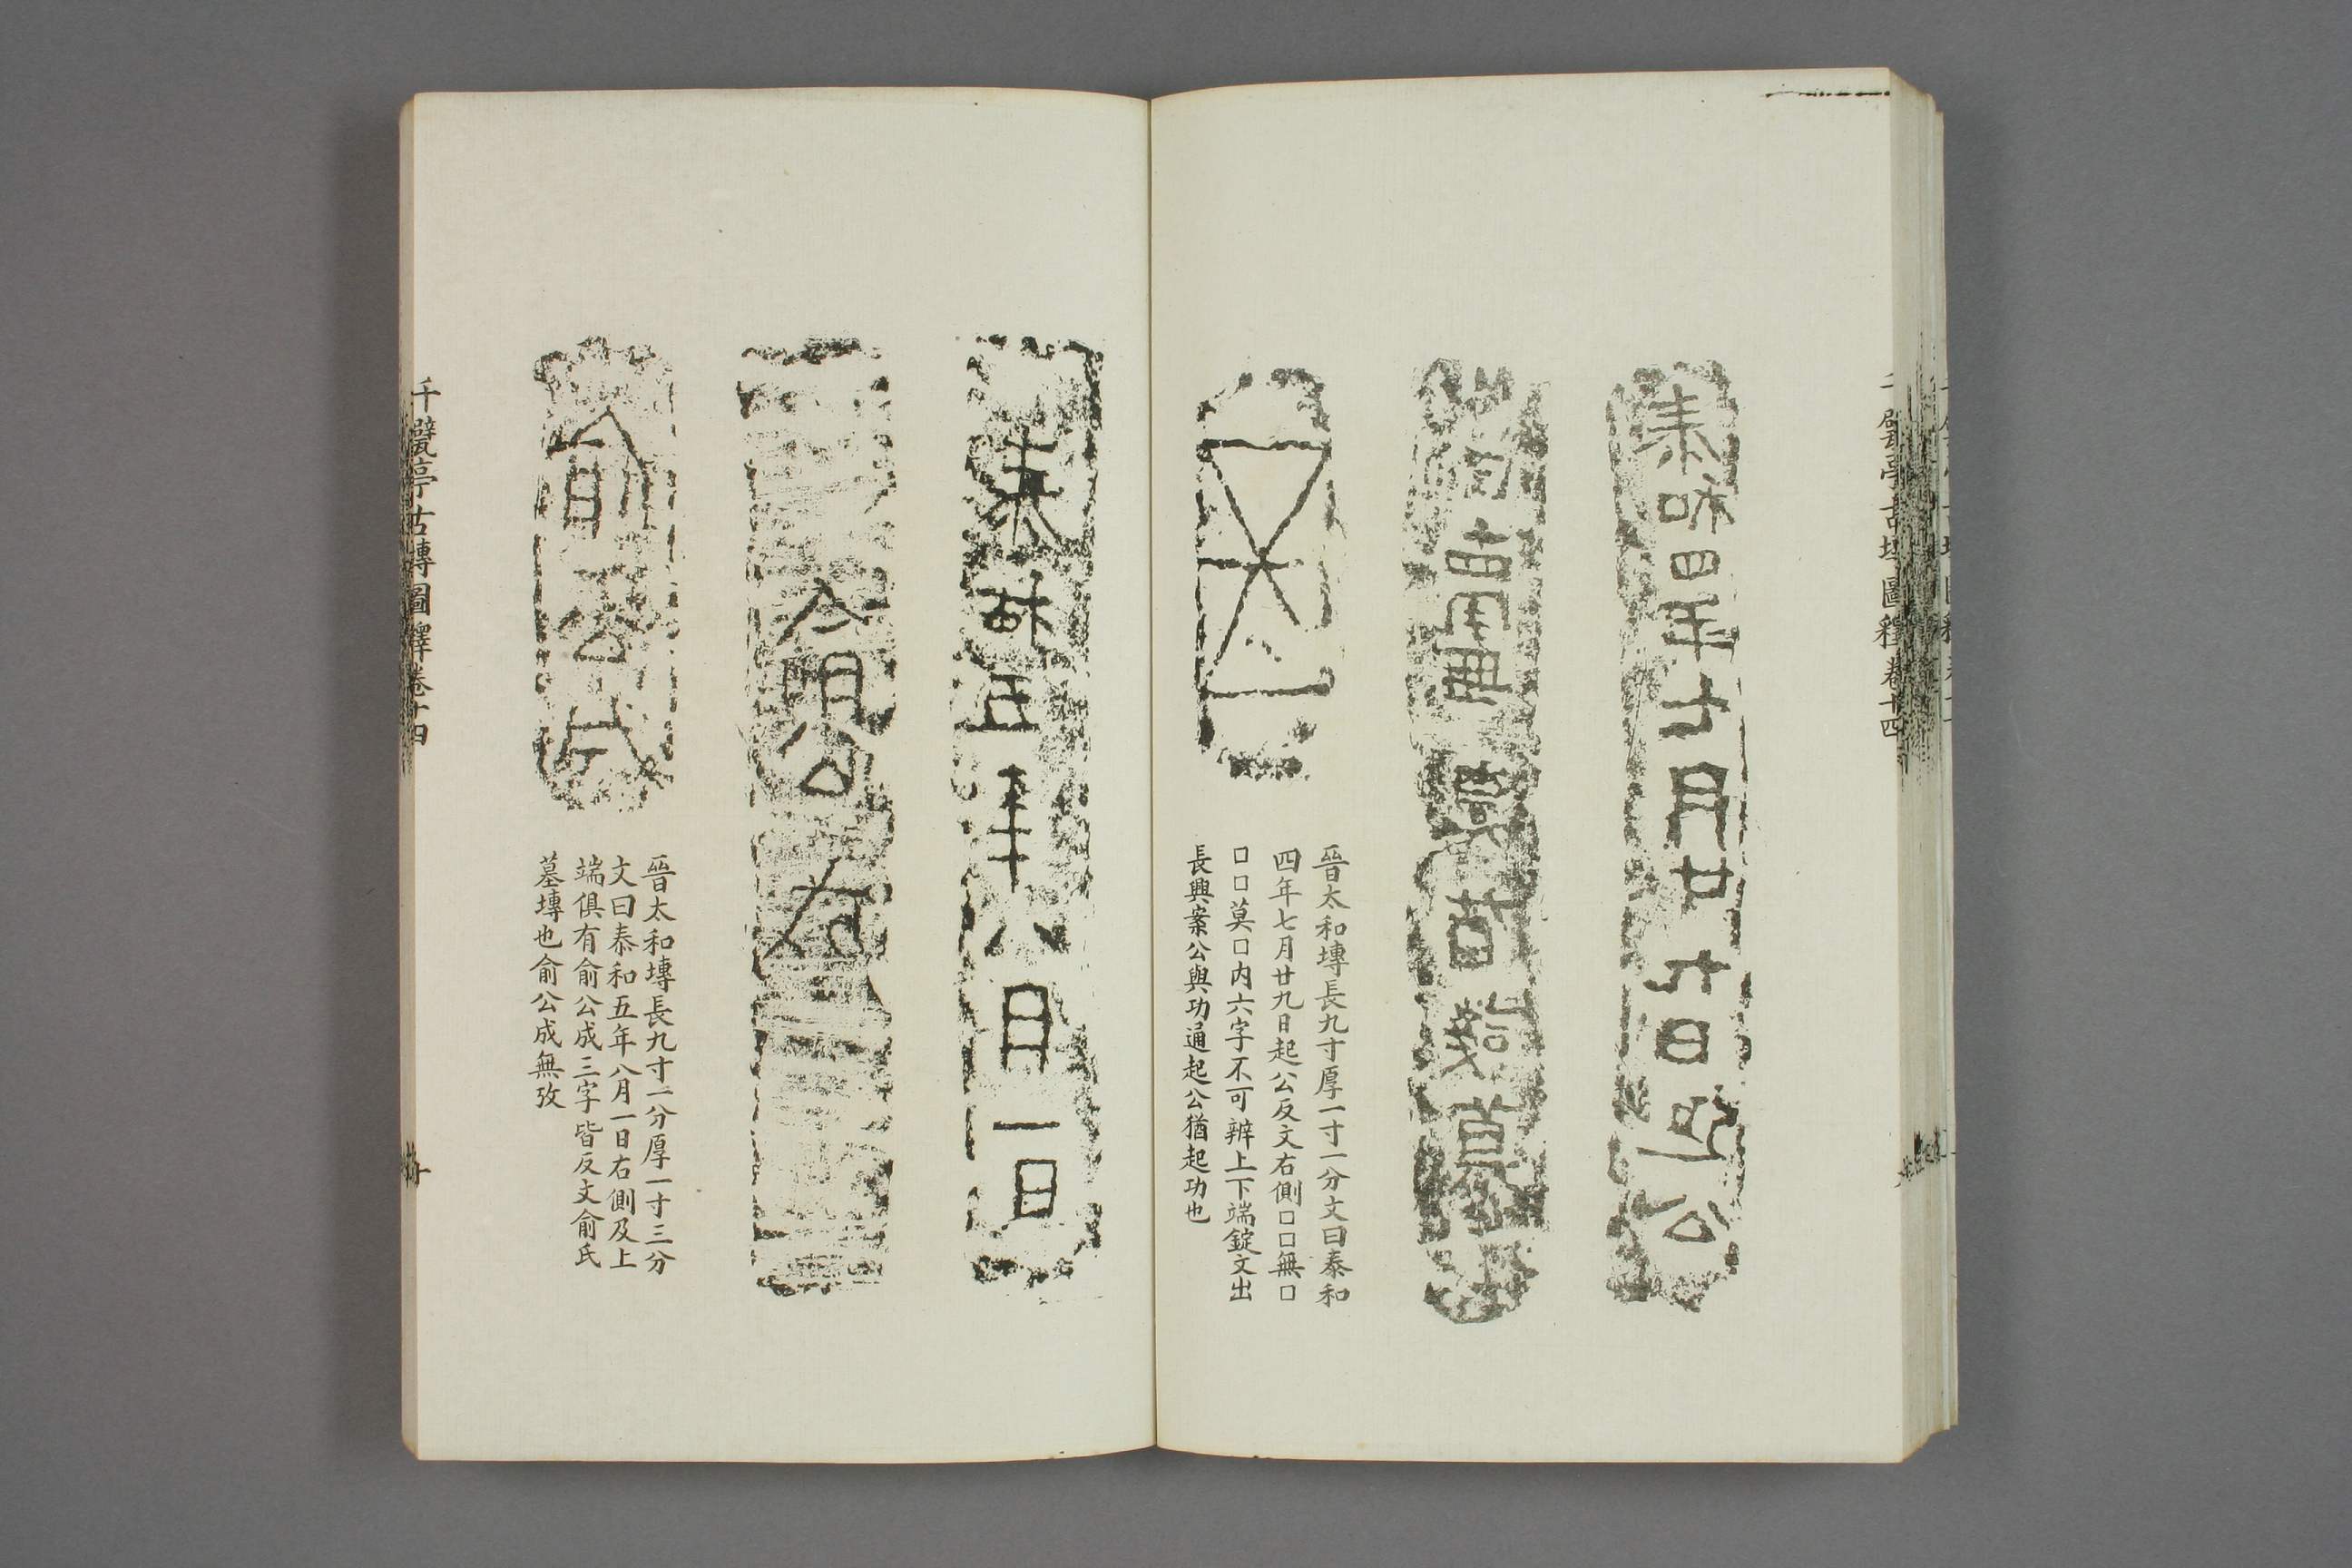 泰和四年七月廿九日起公
晉太和塼長九寸厚一寸一分文曰泰和
四年七月廿九日起公反文右側□□無□
□□莫□内六字不可辨上下端錠文出
長興案公與功通起公猶起功也
泰和五年八月一日
俞公成
俞公成
晉太和塼長九寸二分厚一寸三分
文曰泰和五年八月一日右側及上
端俱有俞公成三字皆反文俞氏
墓塼也俞公成無攷
千甓亭古塼圖釋卷十四